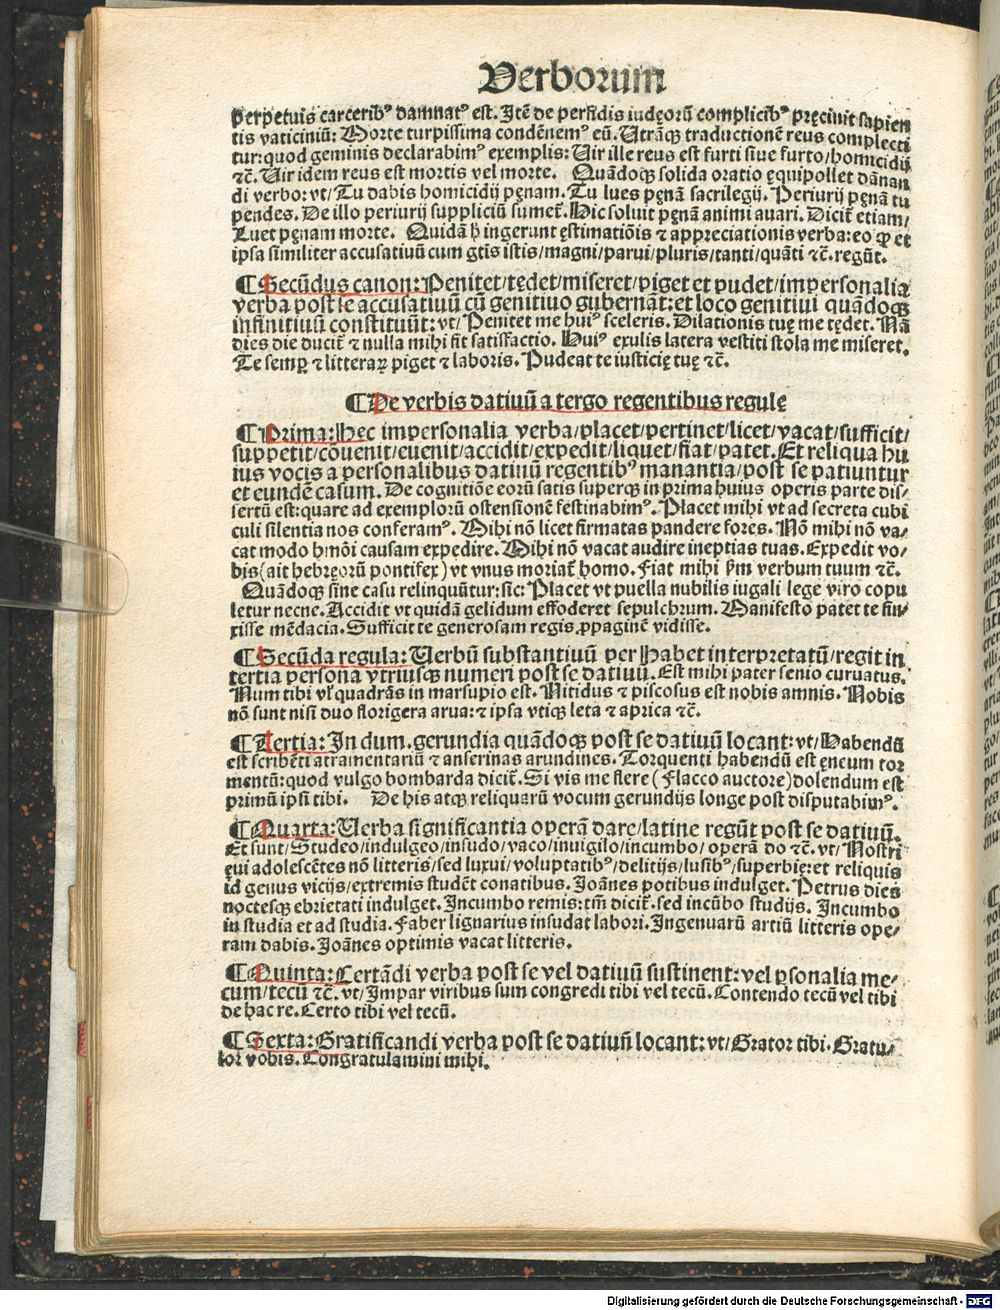 Verborum
perpetuis carcerib⁹ damnat⁹ est. Itē de perfidis iudęorū complicib⁹ pręcinit sapien
tis vaticiniū: Morte turpissima condēnem⁹ eū. Utrāqꝫ traductionē reus complecti
tur: quod geminis declarabim⁹ exemplis: Uir ille reus est furti siue furto/ homicidij
⁊c̄. Uir idem reus est mortis vel morte. Quādoqꝫ solida oratio ęquipollet dānan
di verbo: vt/ Tu dabis homicidij pęnam. Tu lues pęnā sacrilegij. Periurij pęnā tu
pendes. De illo periurij suppliciū sumet᷑. Hic soluit pęnā animi auari. Dicit᷑ etiam/
Luet pęnam morte. Quidā h̄ ingerunt ęstimatiōis ⁊ appreciationis verba: eo ꝙ et
ipsa similiter accusatiuū cum gtis istis/ magni/ parui/ pluris/ tanti/ quāti ⁊c̄. regūt.
¶ Secūdus canon: Penitet/ tędet/ miseret/ piget et pudet/ impersonalia
verba post se accusatiuū cū genitiuo gubernāt: et loco genitiui quādoqꝫ
infinitiuū constituūt: vt/ Penitet me hui⁹ sceleris. Dilationis tuę me tędet. Nā
dies die ducit᷑ ⁊ nulla mihi fit satisfactio. Hui⁹ exulis latera vestiti stola me miseret.
Te semꝑ ⁊ litteraꝝ piget ⁊ laboris. Pudeat te iusticię tuę ⁊c̄.
¶ De verbis datiuū a tergo regentibus regulę
¶ Prima: Hec impersonalia verba/ placet/ pertinet/ licet/ vacat/ sufficit/
suppetit/ cōuenit/ euenit/ accidit/ expedit/ liquet/ fiat/ patet. Et reliqua hu
ius vocis a personalibus datiuū regentib⁹ manantia/ post se patiuntur
et eundē casum. De cognitiōe eorū satis superqꝫ in prima huius operis parte dis/
sertū est: quare ad exemplorū ostensionē festinabim⁹. Placet mihi vt ad secreta cubi
culi silentia nos conferam⁹. Mihi nō licet firmatas pandere fores. Nō mihi nō va/
cat modo hmōi causam expedire. Mihi nō vacat audire ineptias tuas. Expedit vo/
bis (ait hebręorū pontifex) vt vnus moriat᷑ homo. Fiat mihi ẜm verbum tuum ⁊c̄.
Quādoqꝫ sine casu relinquūtur: sic: Placet vt puella nubilis iugali lege viro copu
letur necne. Accidit vt quidā gelidum effoderet sepulchrum. Manifesto patet te fin/
xisse mēdacia. Sufficit te generosam regis ꝓpaginē vidisse.
¶ Secūda regula: Uerbū substantiuū per Habet interpretatū/ regit in
tertia persona vtriusqꝫ numeri post se datiuū. Est mihi pater senio curuatus.
Num tibi vl᷑ quadrās in marsupio est. Nitidus ⁊ piscosus est nobis amnis. Nobis
nō sunt nisi duo florigera arua: ⁊ ipsa vtiqꝫ leta ⁊ aprica ⁊c̄.
¶ Tertia: In dum. gerundia quādoqꝫ post se datiuū locant: vt/ Habendū
est scribēti atramentariū ⁊ anserinas arundines. Torquenti habendū est ęneum tor
mentū: quod vulgo bombarda dicit᷑. Si vis me flere (Flacco auctore) dolendum est
primū ipsi tibi. De his atqꝫ reliquarū vocum gerundijs longe post disputabim⁹.
¶ Quarta: Uerba significantia operā dare/ latine regūt post se datiuū.
Et sunt/ Studeo/ indulgeo/ insudo/ vaco/ inuigilo/ incumbo/ operā do ⁊c̄. vt/ Nostri
qui adolescētes nō litteris/ sed luxui/ voluptatib⁹/ delitijs/ lusib⁹/ superbię: et reliquis
id genus vicijs/ extremis studēt conatibus. Joānes potibus indulget. Petrus dies
noctesqꝫ ebrietati indulget. Incumbo remis: tm̄ dicit᷑. sed incūbo studijs. Incumbo
in studia et ad studia. Faber lignarius insudat labori. Ingenuarū artiū litteris ope/
ram dabis. Joānes optimis vacat litteris.
¶ Quinta: Certādi verba post se vel datiuū sustinent: vel ꝑsonalia me/
cum/ tecū ⁊c̄. vt/ Impar viribus sum congredi tibi vel tecū. Contendo tecū vel tibi
de hac re. Certo tibi vel tecū.
¶ Sexta: Gratificandi verba post se datiuū locant: vt/ Grator tibi. Gratu/
lor vobis. Congratulamini mihi.
Digitalisierung gefördert durch die Deutsche Forschungsgemeinschaft - DFG